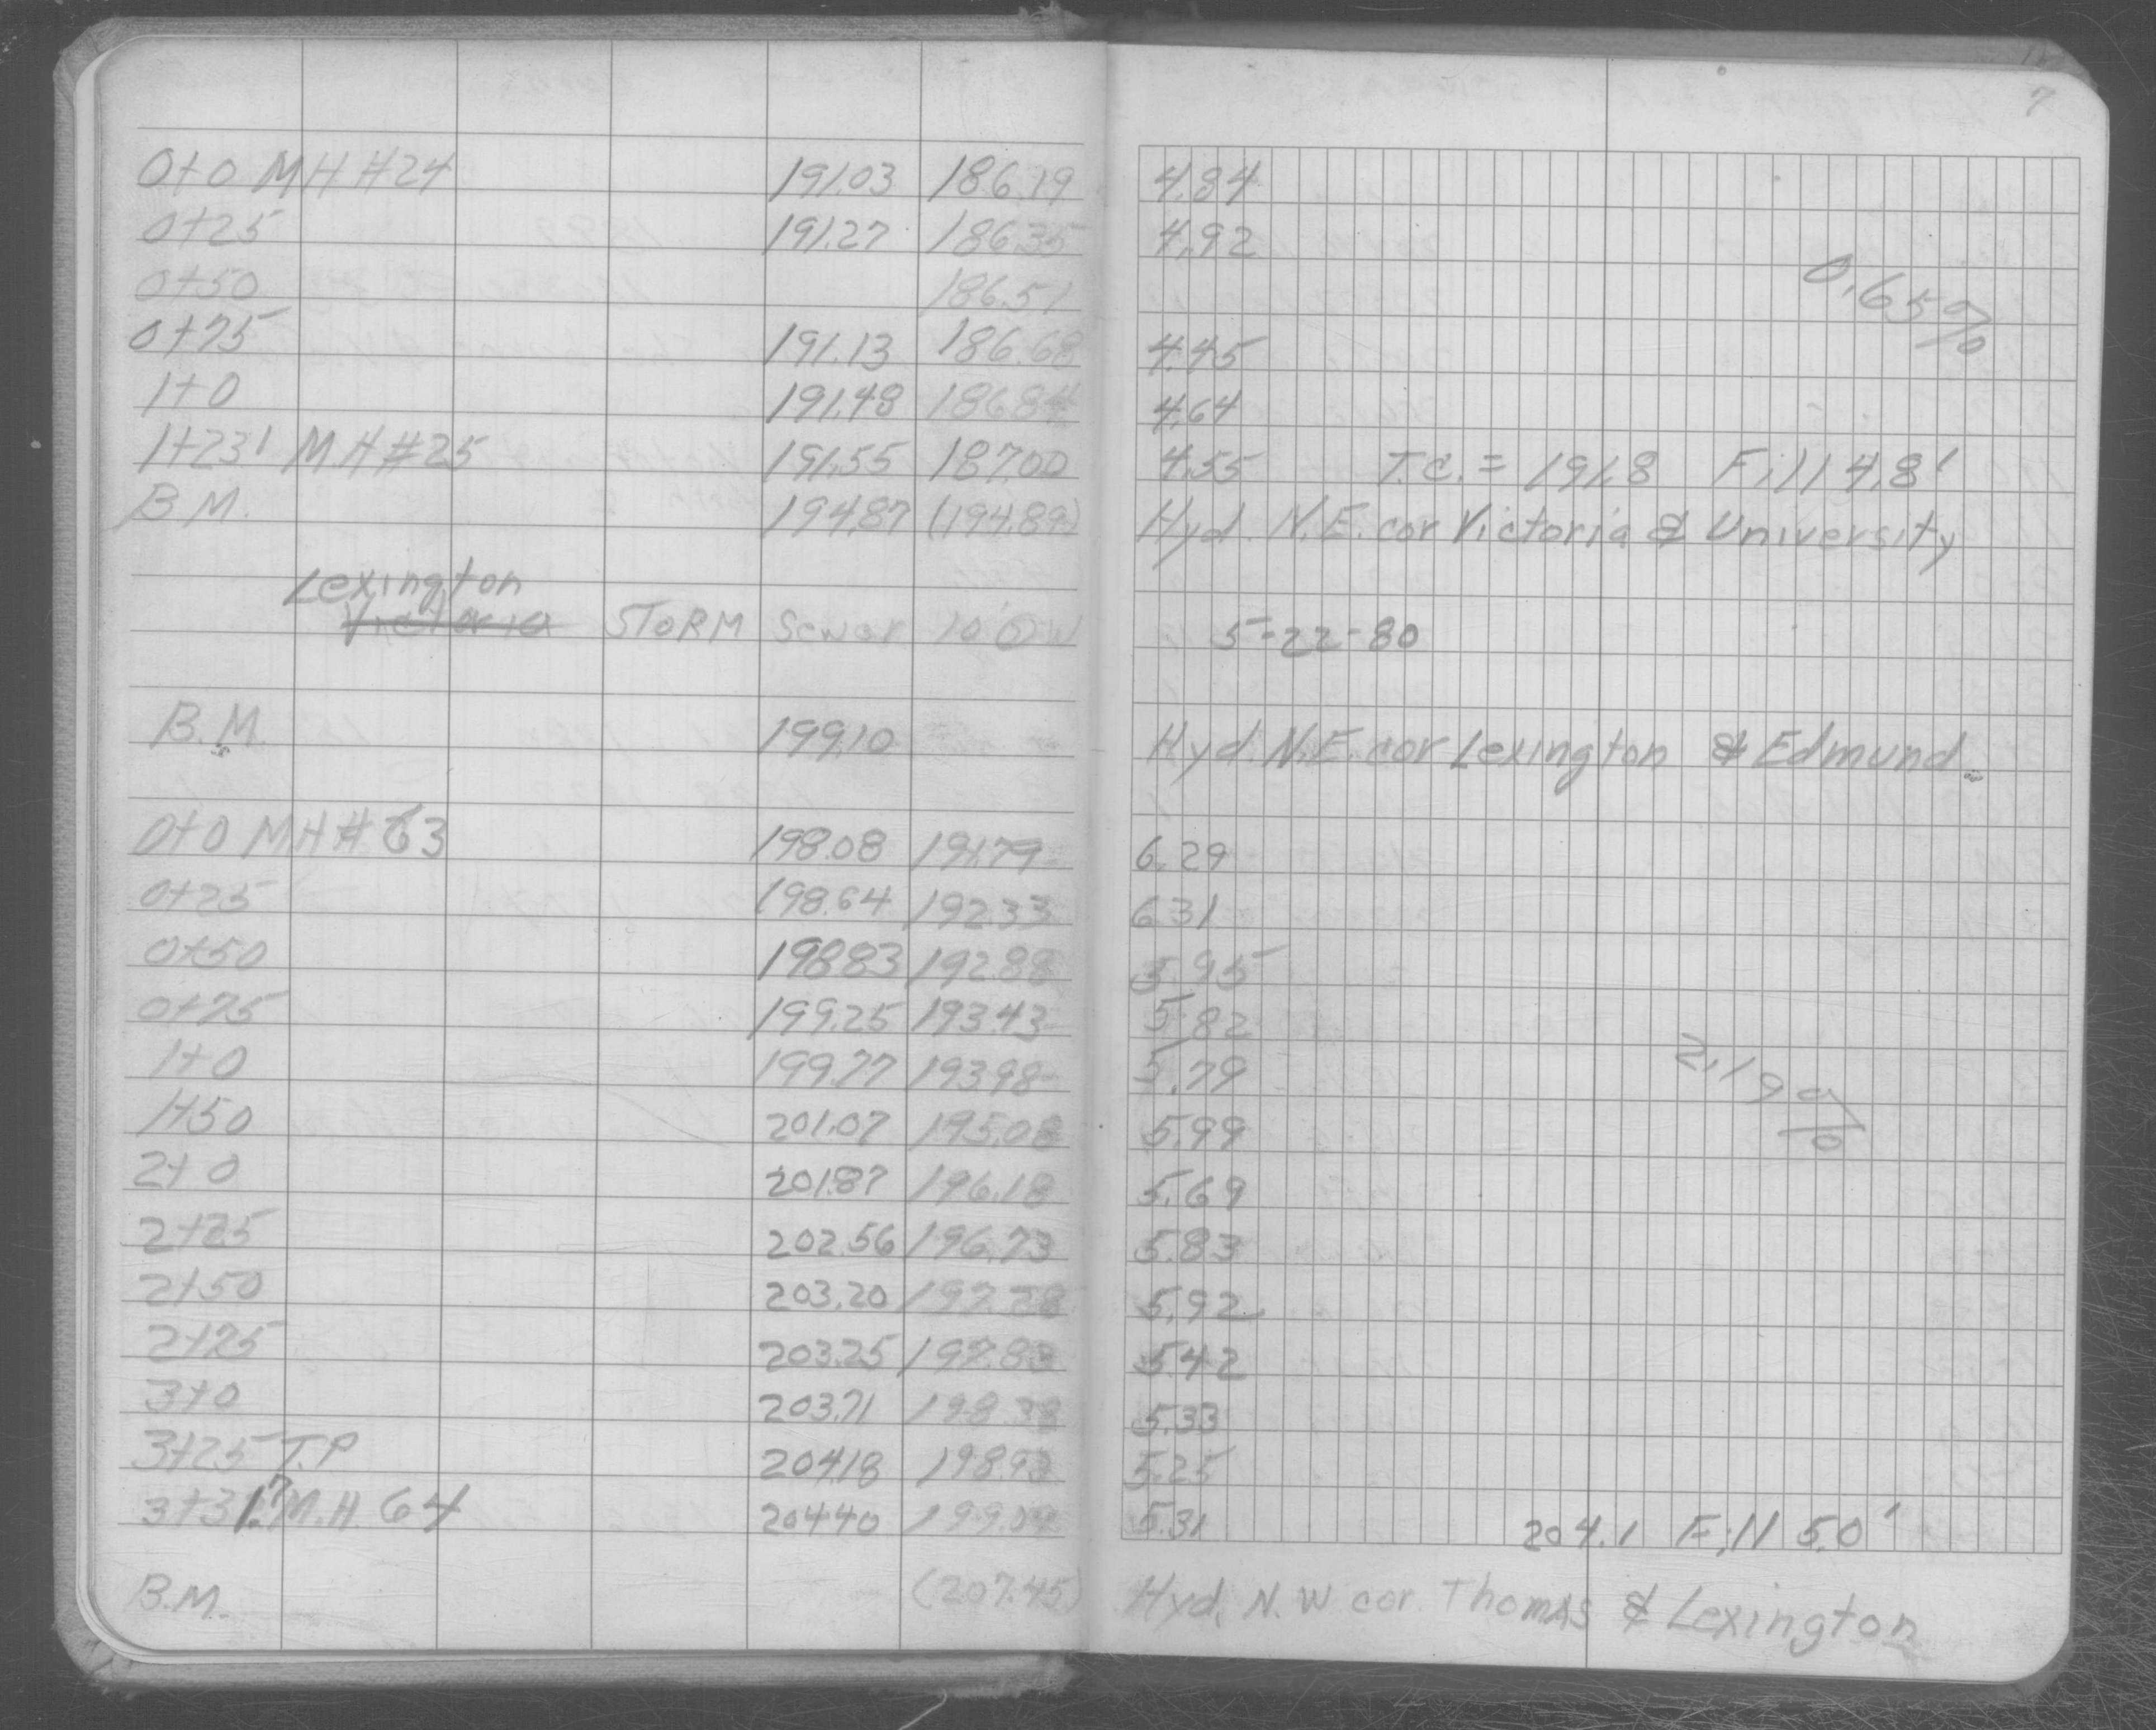 7
0+0 MH #24 191.03 186.19 4.84
0+25 191.27 186.35 4.92
0+50 186.51
0.65%
0+75 191.13 186.68 4.45
1+0 191.48 186.84 4.64
1+23' M.H #25 191.55 187.00 4.55 T.C. = 191.8 Fill 4.8'
B.M. 194.87 (194.89) Hyd. N.E. cor Victoria & University
Lexington
Victoria STORM Sewer 10' W 5-22-80
B.M. 199.10 Hyd. N.E. cor Lexington & Edmund.
0+0 MH # 63 198.08 191.79 6.29
0+25 198.64 192.33 6.31
0+50 198.83 192.88 5.95
0+75 199.25 193.43 5.82
2.19%
1+0 199.77 193.98 5.79
1+50 201.07 195.08 5.99
2+0 201.87 196.18 5.69
2+25 202.56 196.73 5.83
2+50 203.20 197.28 5.92
2+75 203.25 197.83 5.42
3+0 203.71 198.38 5.33
3+25 T.P 204.18 198.93 5.25
3+31.7 M.H. 64 204.40 199.09 5.31 204.1 Fill 5.0'
B.M. (207.45) Hyd. N.W cor. Thomas & Lexington